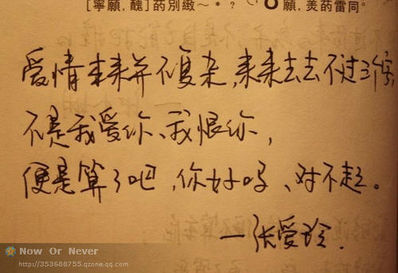 [寧願.醜]葯別緻～*?
願.美葯雷同°
爱情本来并不复杂,来来去去不过三个字
不是我爱你、我恨你,
便是算了吧、你好吗、对不起。
—张爱玲.
Now Or Never
http://353688755.qzone.qq.com